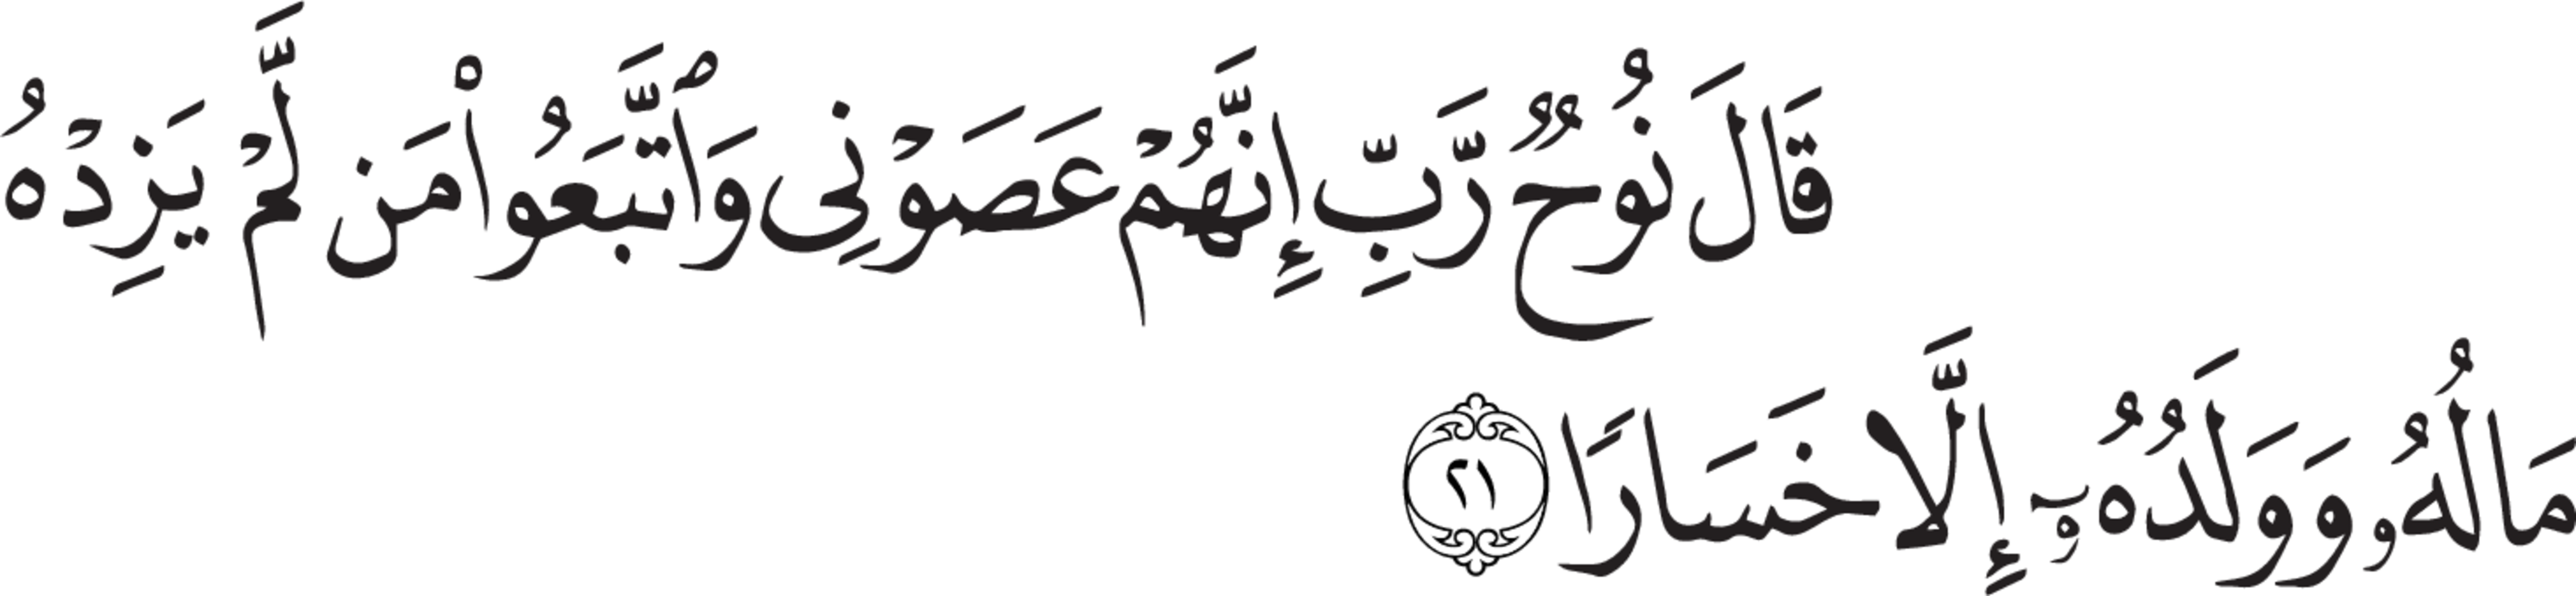 قَالَ نُوحٌ رَّبِّ إِنَّهُمْ عَصَوْنِى وَٱتَّبَعُوا۟ مَن لَّمْ يَزِدْهُ
مَالُهُۥ وَوَلَدُهُۥٓ إِلَّا خَسَارًا ٢١